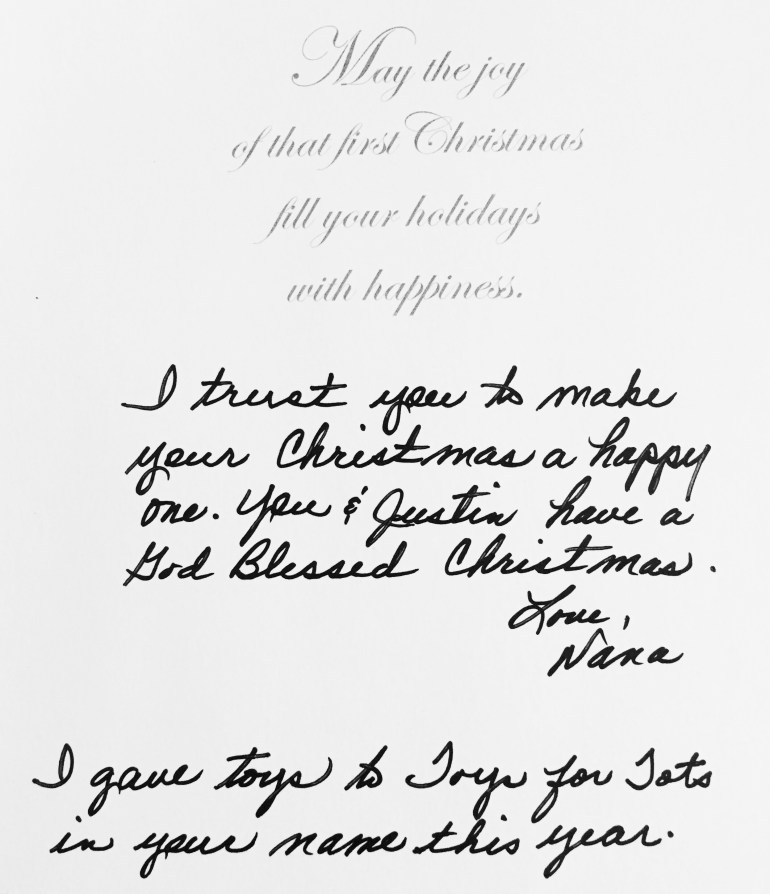 May the joy
of that first Christmas
fill your holidays
with happiness.
I trust you to make
your Christmas a happy
one. You & Justin have a
God Blessed Christmas.
Love,
Nana
I gave toys to Toys for Tots
in your name this year.